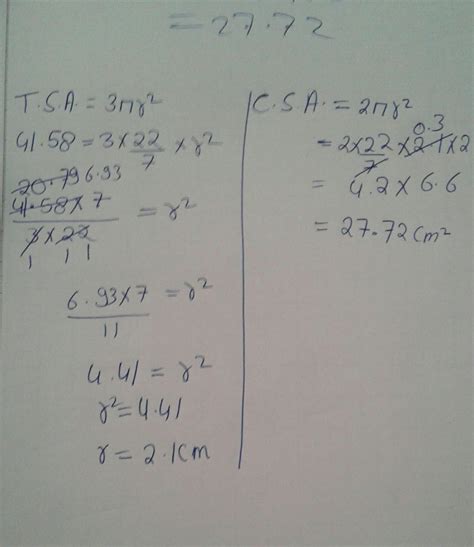 = 27.72
T.S.A. = 3πr²
41.58 = 3 × 22/7 × r²
20.79 6.93
41.58 × 7 / 3 × 22 = r²
1 1 1
6.93 × 7 / 11 = r²
4.41 = r²
r² = 4.41
r = 2.1cm
C.S.A. = 2πr²
0.3
= 2 × 22/7 × 2.1 × 2
= 4.2 × 6.6
= 27.72cm²